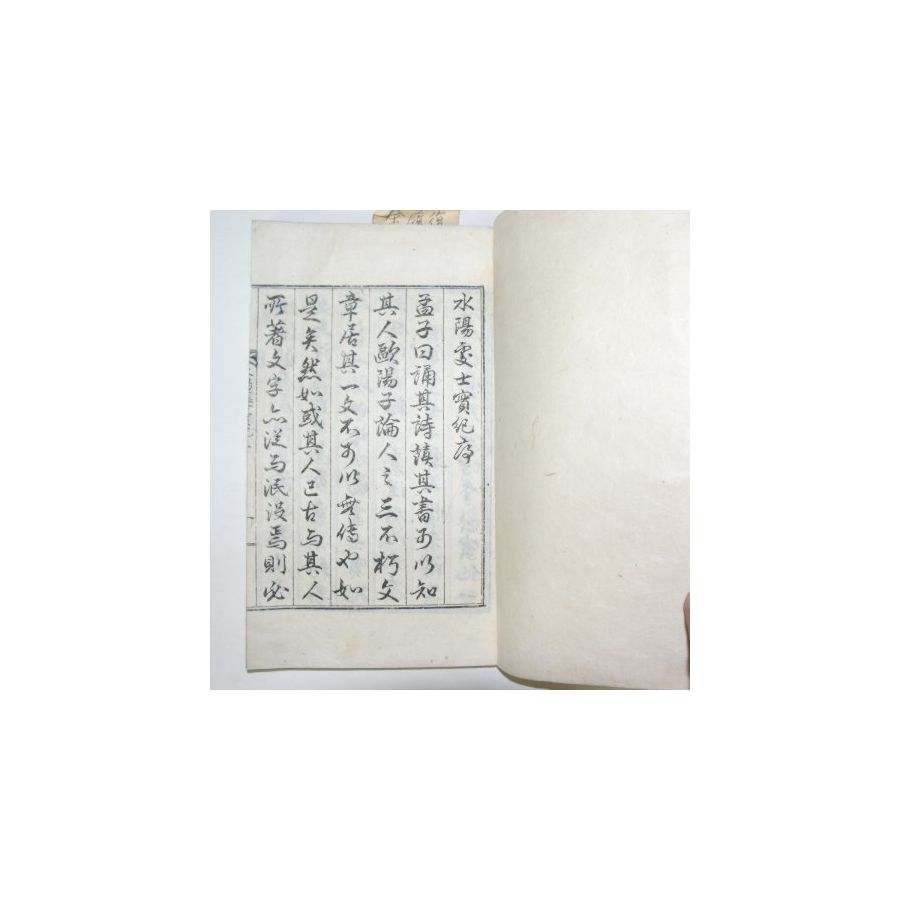 水陽處士實紀序
孟子曰誦其詩讀其書可以知
其人歐陽子論人之三不朽文
章居其一文不可以無傳也如
是矣然如或其人已古与其人
所著文字亦從而泯沒焉則必